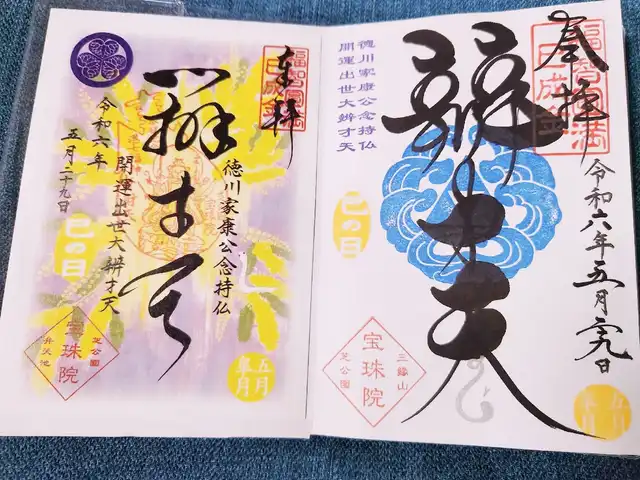 奉拝
福智円満
巳成金
辨才天
徳川家康公念持仏
開運出世大辨才天
令和六年
五月二十九日
巳の日
芝公園
宝珠院
弁天池
五月
皐月
奉拝
福智円満
巳成金
辨才天
徳川家康公念持仏
開運出世大辨才天
令和六年五月二十九日
巳の日
三縁山
宝珠院
芝公園